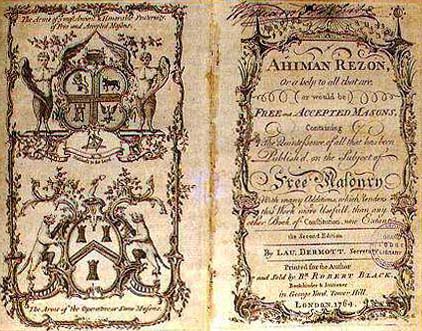 The Arms of ye most Ancient & Honorable Fraternity,
of Free and Accepted Masons.
The Arms of the Operative or Stone Masons.
AHIMAN REZON,
Or a help to all that are,
(or would be)
FREE and ACCEPTED MASONS,
Containing
The Quintessence of all that has been
Publish'd on the Subject of
Free Masonry
With many Additions, which renders
this Work more Usefull, than any
other Book of Constitution, now Extant.
The Second Edition
By LAU. DERMOTT. Secretary.
LIBRARY
Printed for the Author
and Sold by Br. ROBERT BLACK,
Bookbinder & Stationer
in George Yard, Tower Hill.
LONDON, 1764.